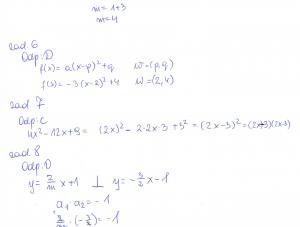 m = 1+3
m = 4
zad. 6
Odp: D
f(x) = a(x-p)²+q W=(p,q)
f(x) = -3(x-2)²+4 W=(2,4)
zad. 7
Odp: C
4x² - 12x + 9 = (2x)² - 2·2x·3 + 3² = (2x-3)² = (2x-3)(2x-3)
zad 8
Odp: D
y = 2/m x + 1 ⊥ y = -3/2 x - 1
a₁ · a₂ = -1
2/m · (-3/2) = -1